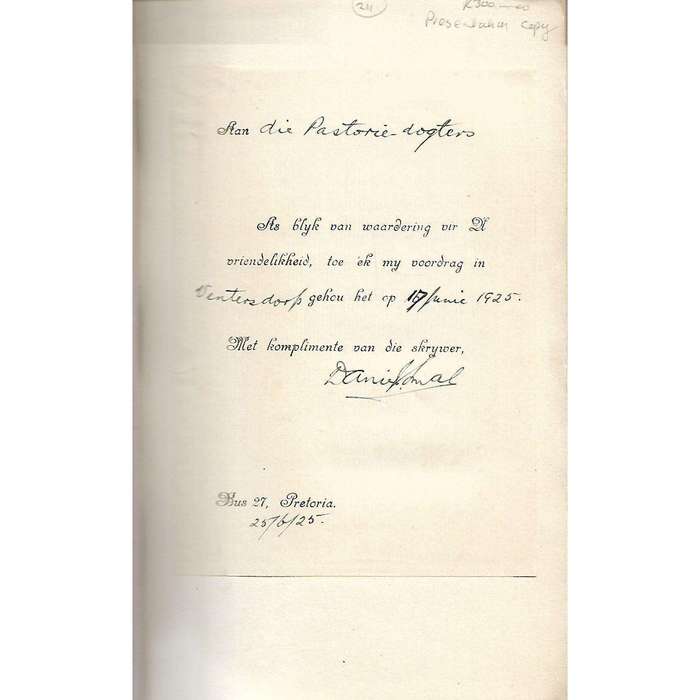 24
R300
Presentation copy
Aan die Pastorie-dogters
As blyk van waardering vir U
vriendelikheid, toe ek my voordrag in
Ventersdorp gehou het op 17 Junie 1925.
Met komplimente van die skrywer,
Bus 27, Pretoria.
25/6/25.